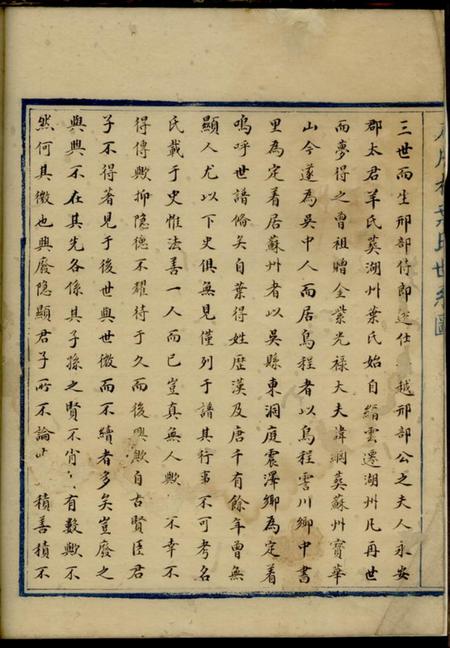 三世而生刑部侍郎逵仕越刑部公之夫人永安
郡太君羊氏葬湖州葉氏始自縉雲遷湖州凡再世
而夢得之曾祖贈金紫光祿大夫諱洞葬蘇州寶華
山今遂為吳中人而居烏程者以烏程雲川鄉中書
里為定着居蘇州者以吳縣東洞庭震澤鄉為定着
嗚呼世譜脩矣自葉得姓歷漢及唐千有餘年曾無
顯人尤以下史俱無見僅列于譜其行事不可考名
氏載于史惟法善一人而已豈真無人歟不幸不
得傳歟抑隱德不耀待于久而後興歟自古賢臣君
子不得著見于後世與世微而不續者多矣豈廢之
與興不在其先各係其子孫之賢不肖有數歟不
然何其微也興廢隱顯君子所不論積善積不
世系圖